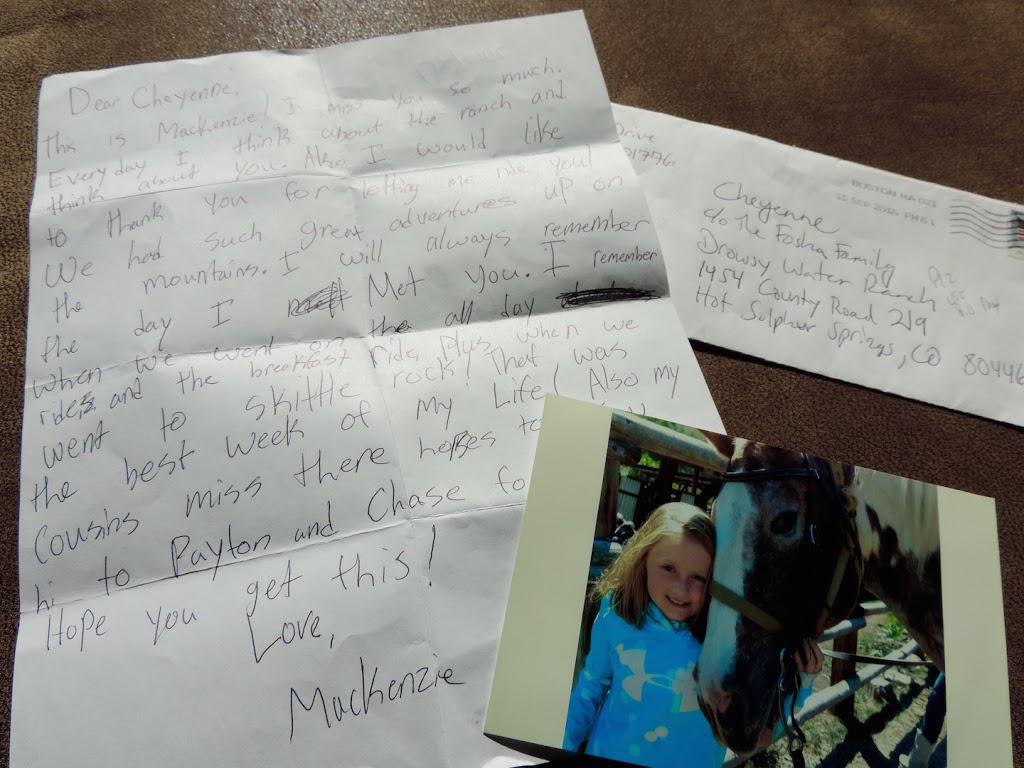 Dear Cheyenne,
this is Mackenzie! I miss you so much.
Every day I think about the ranch and
think about you. Also, I would like
to thank you for letting me ride you!
We had such great adventures up on
the mountains. I will always remember
the day I Met you. I remember
when we went on the all day
rides and the breakfast ride, plus when we
went to skittle rock! That was
the best week of my Life! Also my
Cousins miss there horses to
hi to Payton and Chase fo
Hope you get this!
Love,
Mackenzie
Drive
01776
BOSTON MA 021
25 SEP 2016 PM 6 L
Cheyenne
c/o The Fosha Family
Drowsy Water Ranch
1454 County Road 219
Hot Sulphur Springs, CO 80446